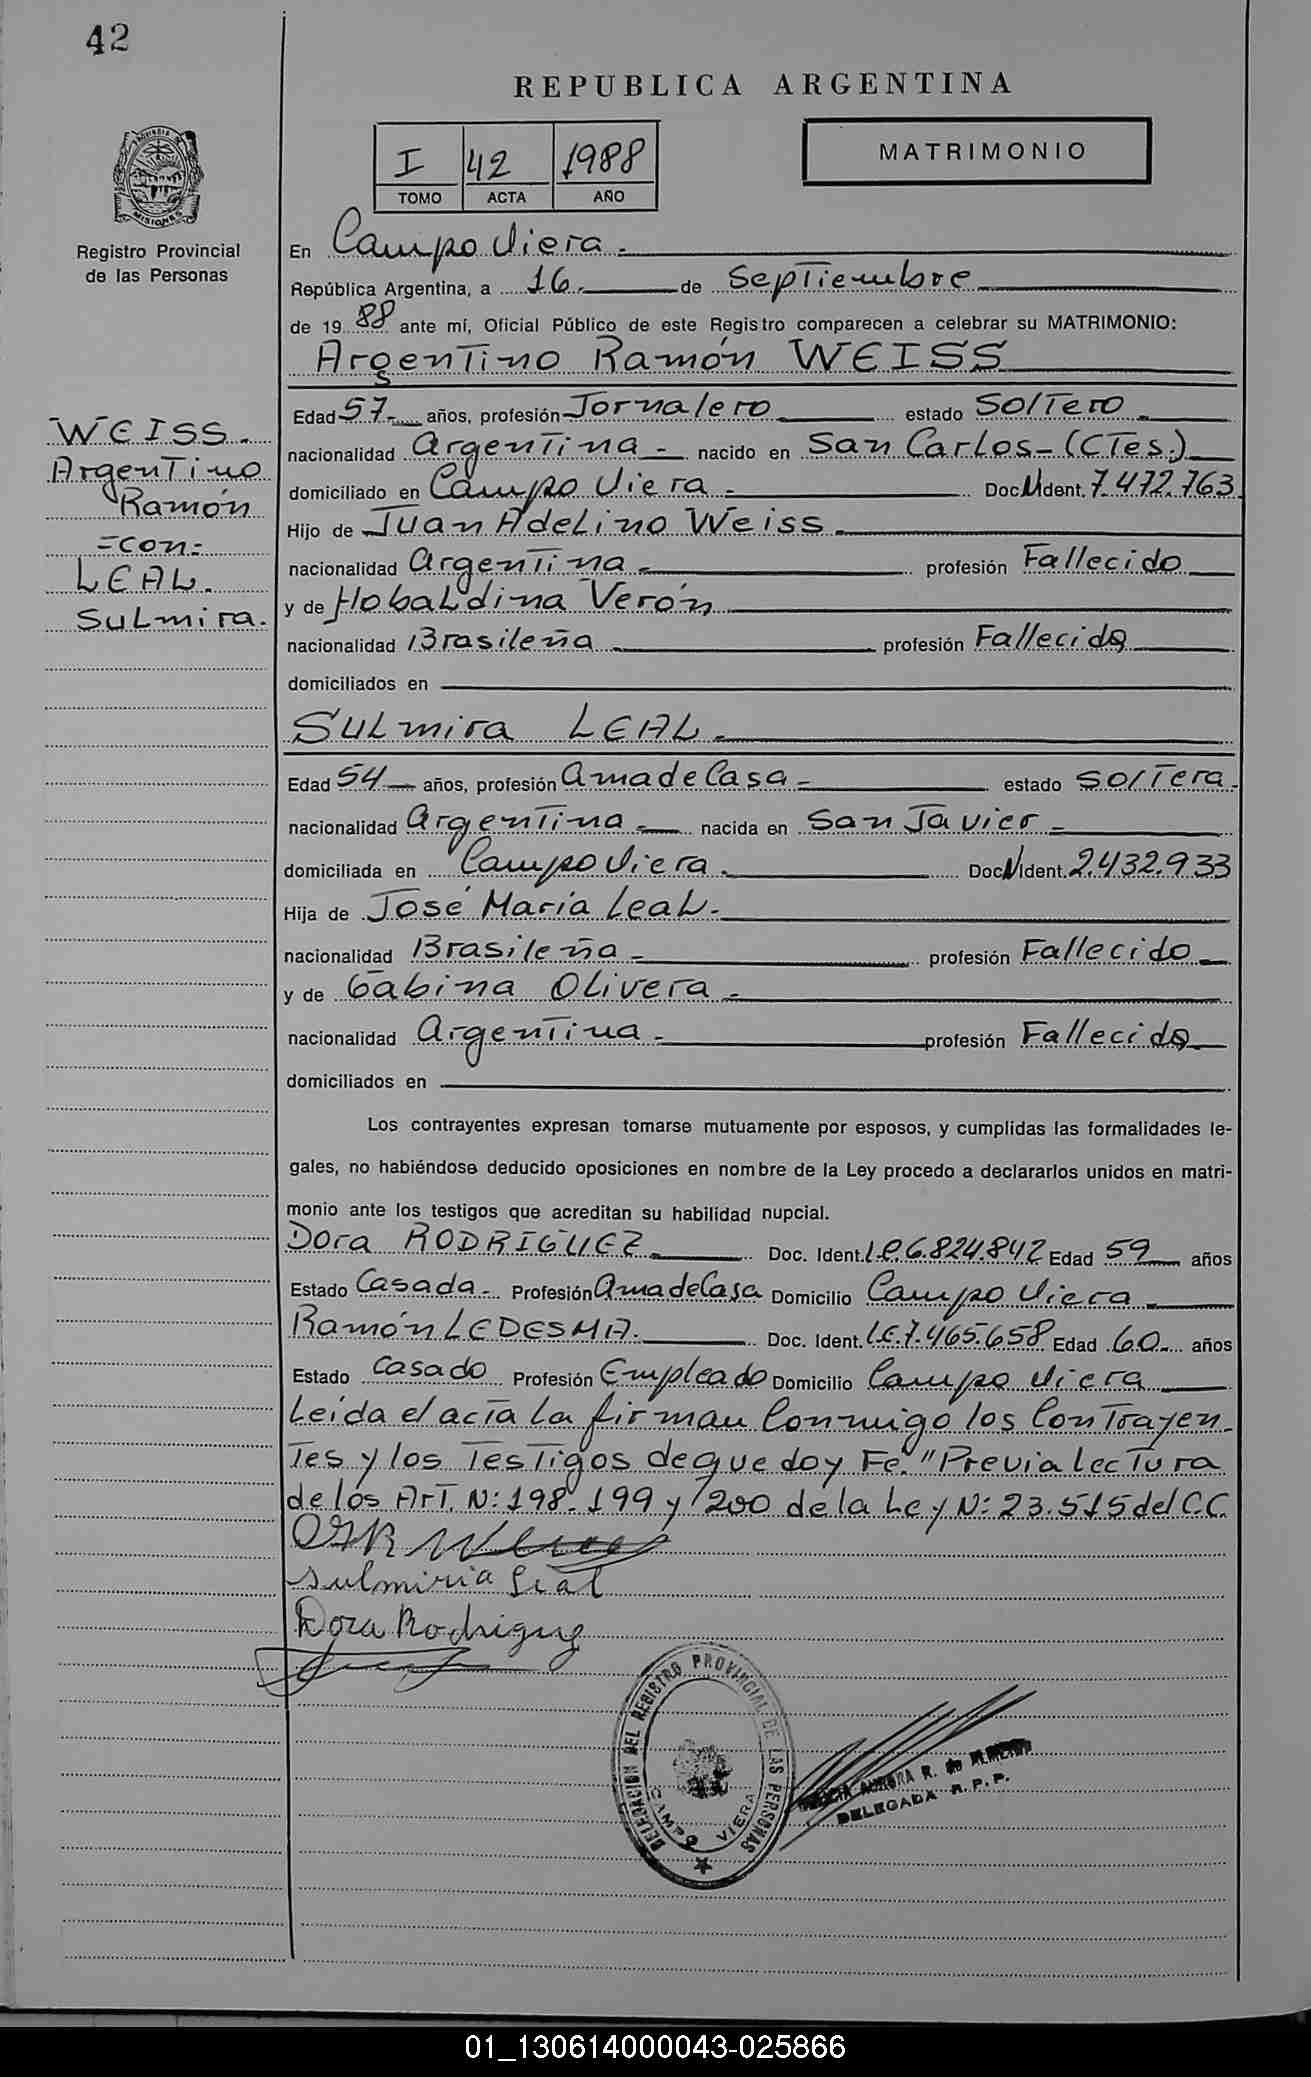 42
REPUBLICA ARGENTINA
I 42 1988
TOMO ACTA AÑO
MATRIMONIO
PROVINCIA DE MISIONES
Registro Provincial
de las Personas
En Campo Viera.-
República Argentina, a 16.- de Septiembre
de 1988 ante mí, Oficial Público de este Registro comparecen a celebrar su MATRIMONIO:
Argentino Ramón WEISS
Edad 57.- años, profesión Jornalero estado Soltero.-
nacionalidad Argentina.- nacido en San Carlos-(CTes.)
domiciliado en Campo Viera.- Doc. N Ident. 7.472.763
Hijo de Juan Adelino Weiss.-
nacionalidad Argentina.- profesión Fallecido
y de Hobaldina Verón
nacionalidad Brasileña.- profesión Fallecida
domiciliados en
Sulmira LEAL.-
Edad 54 años, profesión ama de Casa.- estado Soltera.-
nacionalidad Argentina.- nacida en San Javier.-
domiciliada en Campo Viera.- Doc. N Ident. 2.432.933
Hija de José María Leal.-
nacionalidad Brasileña.- profesión Fallecido.-
y de Gabina Olivera.-
nacionalidad Argentina.- profesión Fallecida
domiciliados en
WEISS.
Argentino
Ramón
=con=
LEAL.
Sulmira.
Los contrayentes expresan tomarse mutuamente por esposos, y cumplidas las formalidades le-
gales, no habiéndose deducido oposiciones en nombre de la Ley procedo a declararlos unidos en matri-
monio ante los testigos que acreditan su habilidad nupcial.
Dora RODRIGUEZ.- Doc. Ident. L.C. 6.824.842 Edad 59 años
Estado Casada.- Profesión ama de Casa Domicilio Campo Viera.-
Ramón LEDESMA.- Doc. Ident. L.E. 7.465.658 Edad 60.- años
Estado Casado Profesión Empleado Domicilio Campo Viera
Leída el acta la firman Conmigo los Contrayen-
tes y los Testigos de que doy Fe. "Previa lectura
de los Art. N: 198- 199 y 200 de la Ley N: 23.515 del C.C.
Sulmiria Leal
Dora Rodriguez
DELEGACION DEL REGISTRO PROVINCIAL DE LAS PERSONAS
CAMPO VIERA
AURORA R. de
DELEGADA R.P.P.
01_130614000043-025866